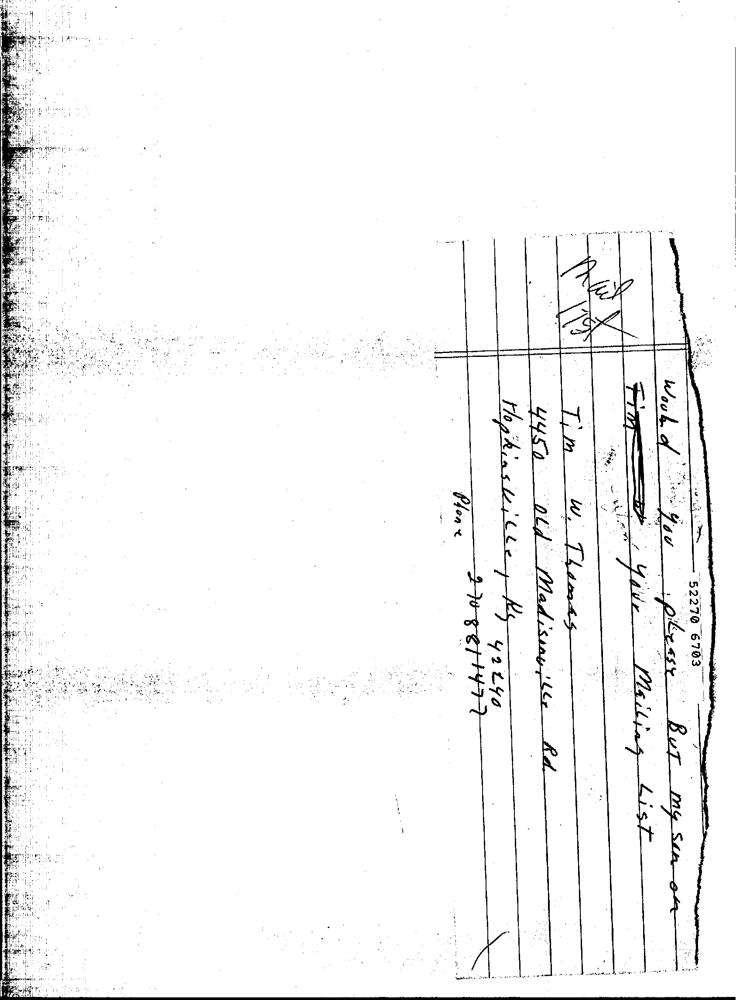 52270 6703
Would you please But my son on
Tim your Mailing List
Mail
list
Tim W. Thomas
4450 OLd Madisonville Rd
HopkinsviLLe, Ky 42240
Phone 270 8811477